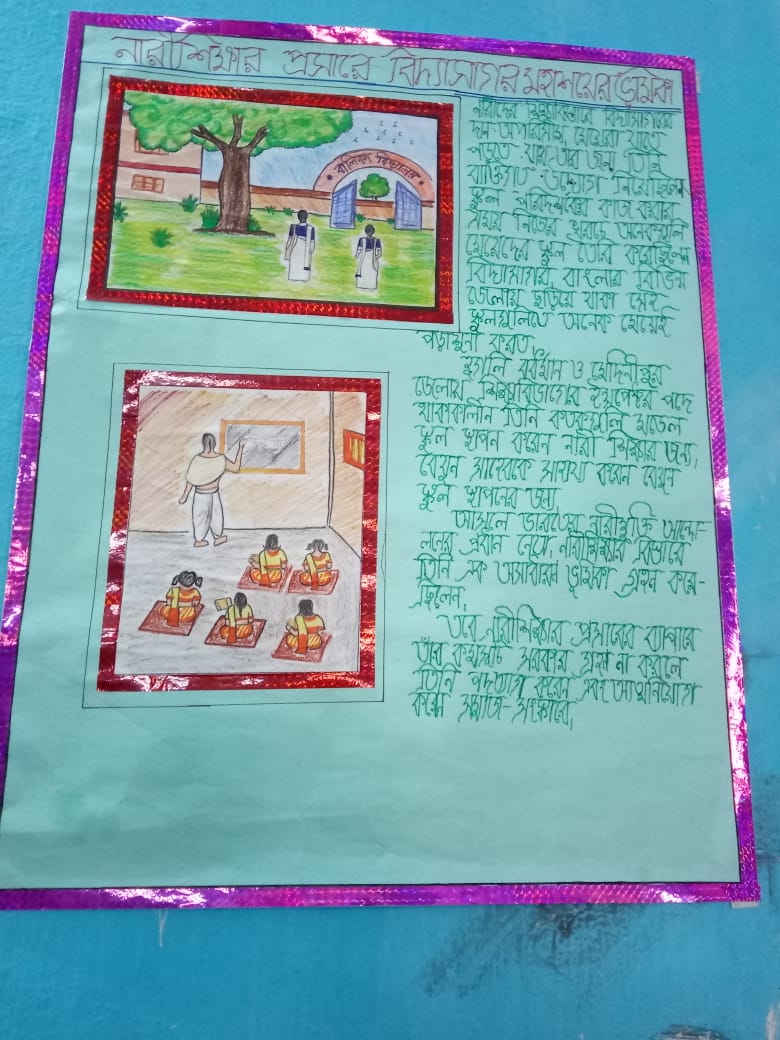 নারীশিক্ষার প্রসারে বিদ্যাসাগর মহাশয়ের ভূমিকা
বালিকা বিদ্যালয়
নারীদের শিক্ষাবিস্তারে বিদ্যাসাগরের
দান অপরিসীম মেয়েরা যাতে
পড়তে যায় তার জন্য তিনি
ব্যক্তিগত উদ্যোগ নিয়েছিলেন
স্কুল পরিদর্শকের কাজ করার
সময় নিজের খরচে অনেকগুলি
মেয়েদের স্কুল তৈরি করেছিলেন
বিদ্যাসাগর বাংলার বিভিন্ন
জেলায় ছড়িয়ে থাকা সেই
স্কুলগুলিতে অনেক মেয়েই
পড়াশুনা করত,
হুগলি বর্ধমান ও মেদিনীপুর
জেলায় শিক্ষাবিভাগের ইন্সপেক্টর পদে
থাকাকালীন তিনি কতকগুলি মডেল
স্কুল স্থাপন করেন নারী শিক্ষার জন্য,
বেথুন সাহেবকে সাহায্য করেন বেথুন
স্কুল স্থাপনের জন্য
আসলে ভারতের নারীমুক্তি আন্দো-
লনের প্রধান নেতা, নারীশিক্ষার বিস্তারে
তিনি এক অসাধারণ ভূমিকা গ্রহন করে-
ছিলেন,
তবে নারীশিক্ষার প্রসারের ব্যাপারে
তাঁর কর্মসূচি সরকার গ্রহণ না করলে
তিনি পদত্যাগ করেন এবং আত্মনিয়োগ
করেন সমাজ-সংস্কারে,